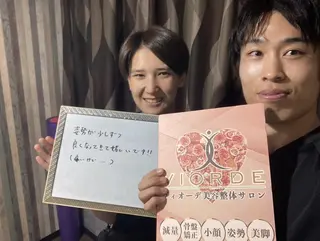 姿勢が少しずつ
良くなってきて嬉しいです!!
VIORDE
ヴィオーデ美容整体サロン
減量
骨盤矯正
小顔
姿勢
美脚